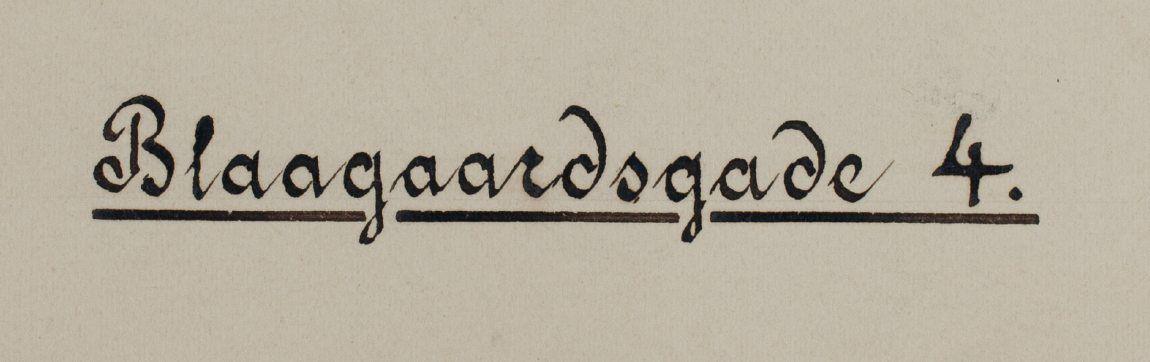 Blaagaardsgade 4.